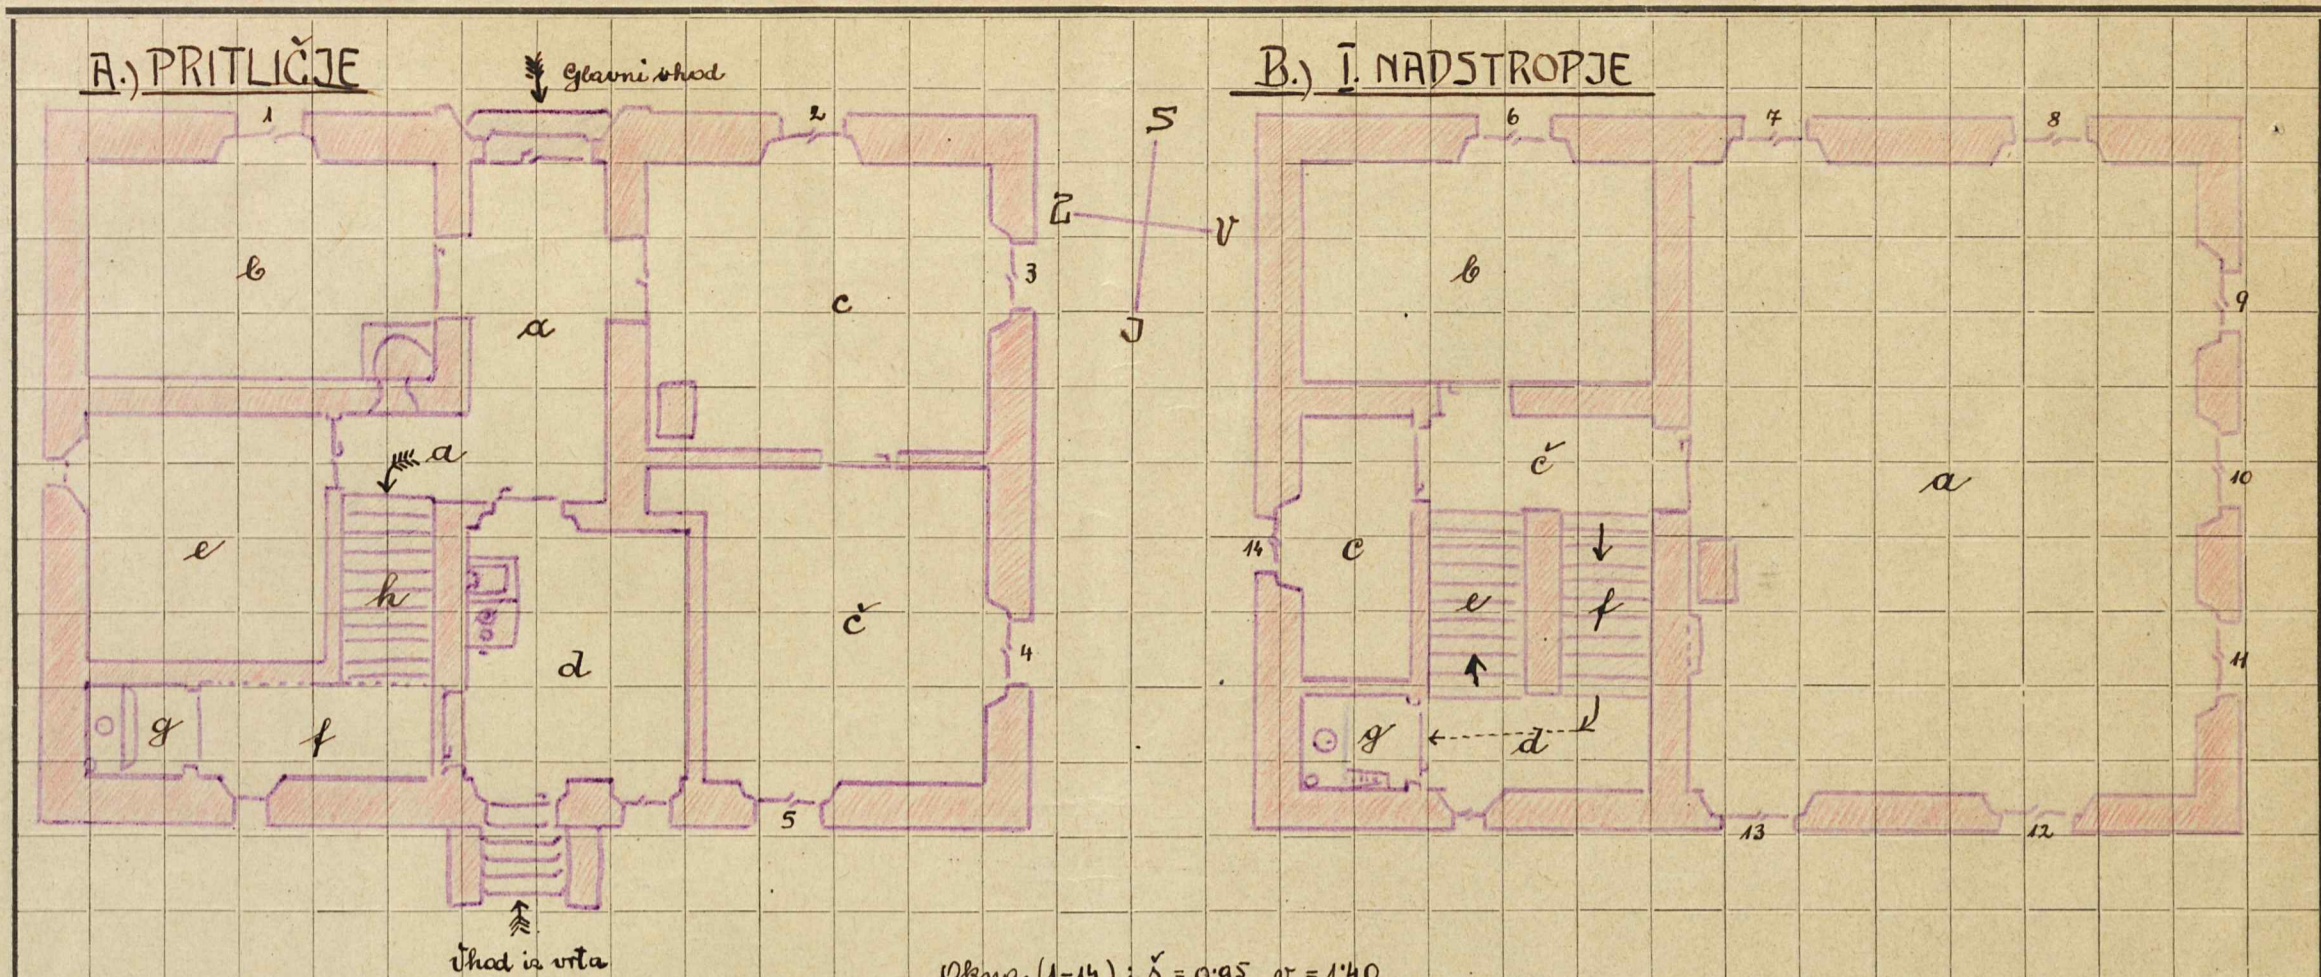 A.) PRITLIČJE
Glavni vhod
1
2
b
a
c
3
a
e
h
d
č
4
g
f
5
Vhod iz vrta
S
Z
V
J
B.) I. NADSTROPJE
6
7
8
b
9
č
a
10
14
c
e
f
11
g
d
13
12
Okna (1-14) : š = 0·95 v = 1·40